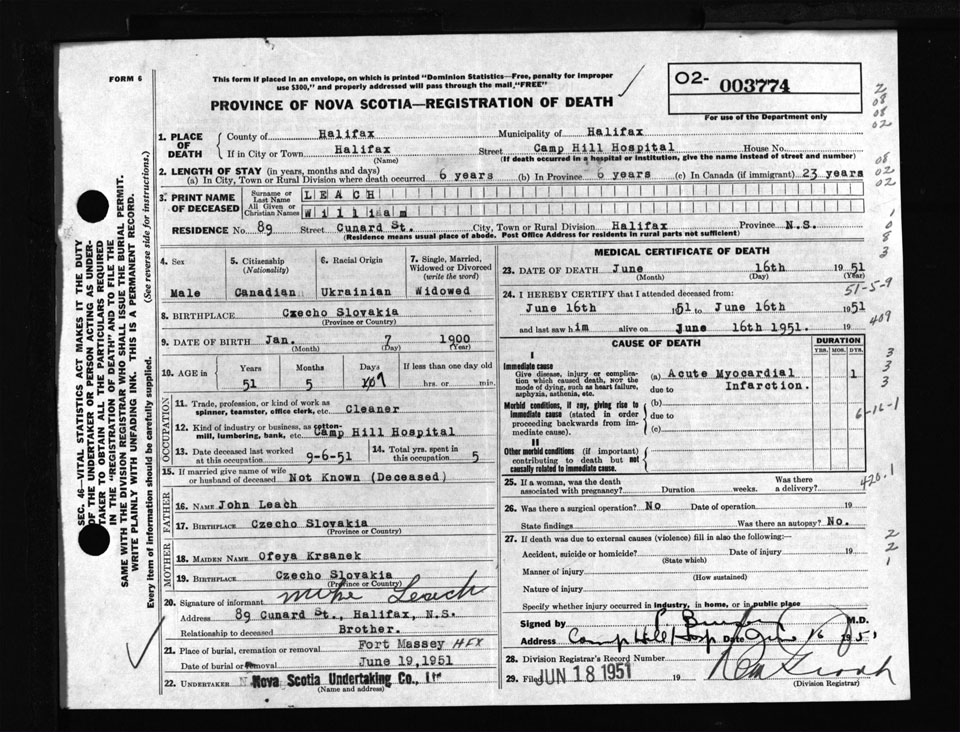 FORM 6
This form if placed in an envelope, on which is printed "Dominion Statistics—Free, penalty for improper
use $300," and properly addressed will pass through the mail,"FREE"
PROVINCE OF NOVA SCOTIA—REGISTRATION OF DEATH
O2- 003774
For use of the Department only
SEC. 46—VITAL STATISTICS ACT MAKES IT THE DUTY
OF THE UNDERTAKER OR PERSON ACTING AS UNDER-
TAKER TO OBTAIN ALL THE PARTICULARS REQUIRED
IN THE "REGISTRATION OF DEATH" AND TO FILE THE
SAME WITH THE DIVISION REGISTRAR WHO SHALL ISSUE THE BURIAL PERMIT.
WRITE PLAINLY WITH UNFADING INK. THIS IS A PERMANENT RECORD.
Every item of information should be carefully supplied. (See reverse side for instructions.)
1. PLACE OF DEATH
County of Halifax Municipality of Halifax
If in City or Town Halifax Street Camp Hill Hospital House No.
(Name) (If death occurred in a hospital or institution, give the name instead of street and number)
2. LENGTH OF STAY (in years, months and days)
(a) In City, Town or Rural Division where death occurred 6 years (b) In Province 6 years (c) In Canada (if immigrant) 23 years
3. PRINT NAME OF DECEASED
Surname or Last Name LEACH
All Given or Christian Names William
RESIDENCE No. 89 Street Cunard St. City, Town or Rural Division Halifax Province N.S.
(Residence means usual place of abode. Post Office Address for residents in rural parts not sufficient)
4. Sex
Male
5. Citizenship
(Nationality)
Canadian
6. Racial Origin
Ukrainian
7. Single, Married,
Widowed or Divorced
(write the word)
Widowed
8. BIRTHPLACE Czecho Slovakia
(Province or Country)
9. DATE OF BIRTH Jan. 7 1900
(Month) (Day) (Year)
10. AGE in Years Months Days If less than one day old
51 5 9 hrs. or min.
OCCUPATION
11. Trade, profession, or kind of work as
spinner, teamster, office clerk, etc. Cleaner
12. Kind of industry or business, as cotton-
mill, lumbering, bank, etc. Camp Hill Hospital
13. Date deceased last worked
at this occupation 9-6-51
14. Total yrs. spent in
this occupation 5
15. If married give name of wife
or husband of deceased Not Known (Deceased)
FATHER
16. NAME John Leach
17. BIRTHPLACE Czecho Slovakia
(Province or Country)
MOTHER
18. MAIDEN NAME Ofeya Krsanek
19. BIRTHPLACE Czecho Slovakia
(Province or Country)
20. Signature of informant Mike Leach
Address 89 Cunard St., Halifax, N.S.
Relationship to deceased Brother.
21. Place of burial, cremation or removal Fort Massey HFX
Date of burial or removal June 19,1951
22. UNDERTAKER Nova Scotia Undertaking Co., Ltd
(Name and address)
MEDICAL CERTIFICATE OF DEATH
23. DATE OF DEATH June 16th 1951
(Month) (Day) (Year)
24. I HEREBY CERTIFY that I attended deceased from:
June 16th 1951 to June 16th 1951
and last saw him alive on June 16th 1951. 19
CAUSE OF DEATH
DURATION
YRS. MOS. DYS.
I
Immediate cause
Give disease, injury or complica-
tion which caused death, NOT the
mode of dying, such as heart failure,
asphyxia, asthenia, etc.
(a) Acute Myocardial 1
due to Infarction.
Morbid conditions, if any, giving rise to
immediate cause (stated in order
proceeding backwards from im-
mediate cause).
(b)
due to
(c)
II
Other morbid conditions (if important)
contributing to death but not
causally related to immediate cause.
25. If a woman, was the death
associated with pregnancy? Duration weeks. Was there
a delivery?
26. Was there a surgical operation? No Date of operation 19
State findings Was there an autopsy? No.
27. If death was due to external causes (violence) fill in also the following:
Accident, suicide or homicide? Date of injury 19
(State which)
Manner of injury
(How sustained)
Nature of injury
Specify whether injury occurred in industry, in home, or in public place
Signed by M.D.
Address Camp Hill Hosp Date June 16 1951
28. Division Registrar's Record Number
29. Filed JUN 18 1951 19
(Division Registrar)
2
08
08
02
08
02
02
1
0
8
3
51-5-9
409
3
3
3
6-16-1
420.1
2
2
1